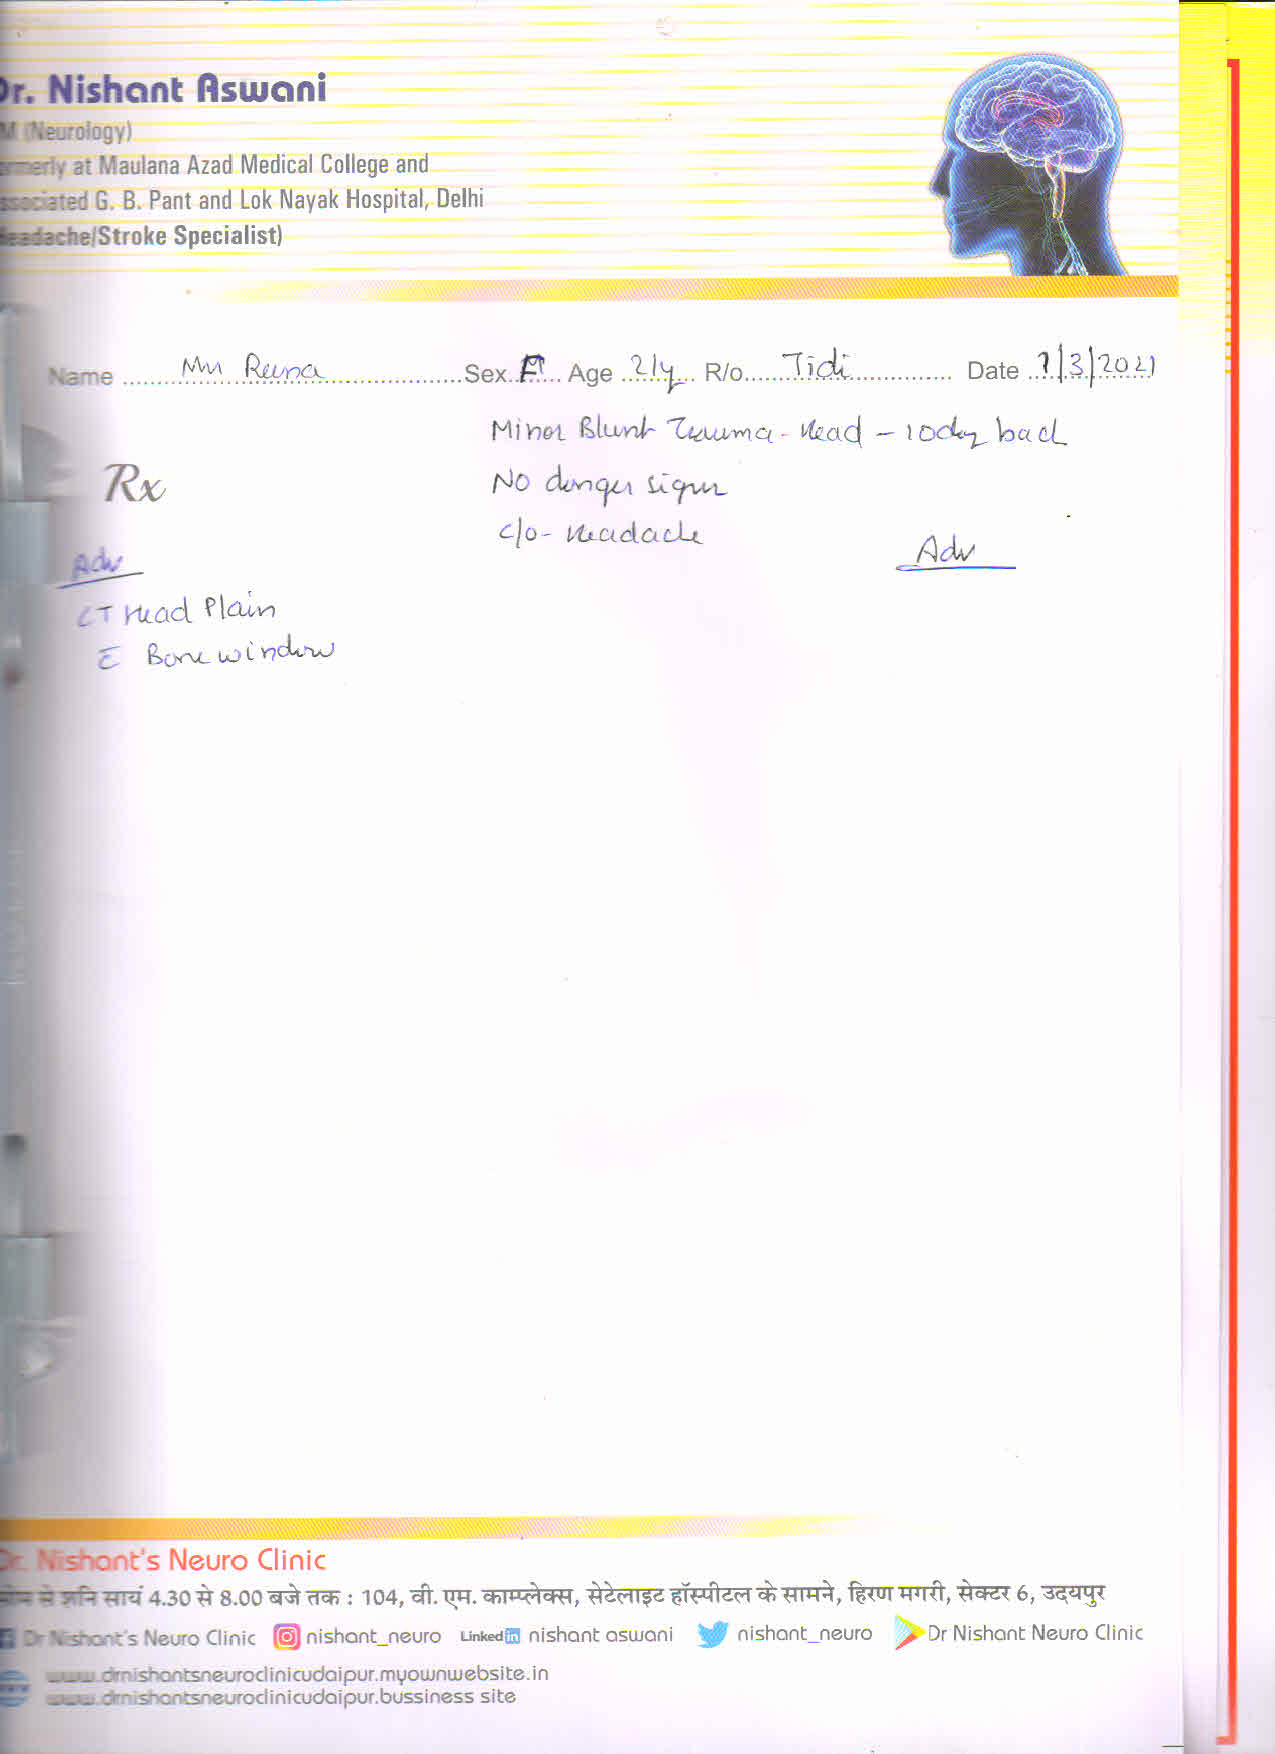 Dr. Nishant Aswani
M (Neurology)
ormerly at Maulana Azad Medical College and
ssociated G. B. Pant and Lok Nayak Hospital, Delhi
Headache/Stroke Specialist)
Name Reena Sex Age 21y R/o Tidi Date 7/3/2021
Minor Blunt Trauma - Head - 10day back
Rx
No danger signs
c/o - Headache
Adv
Adv
CT Head Plain
c̄ Bone window
Dr. Nishant's Neuro Clinic
सोम से शनि सायं 4.30 से 8.00 बजे तक : 104, वी. एम. काम्प्लेक्स, सेटेलाइट हॉस्पीटल के सामने, हिरण मगरी, सेक्टर 6, उदयपुर
Dr Nishant's Neuro Clinic nishant_neuro Linkedin nishant aswani nishant_neuro Dr Nishant Neuro Clinic
www.drnishantsneuroclinicudaipur.myownwebsite.in
www.drnishantsneuroclinicudaipur.bussiness site